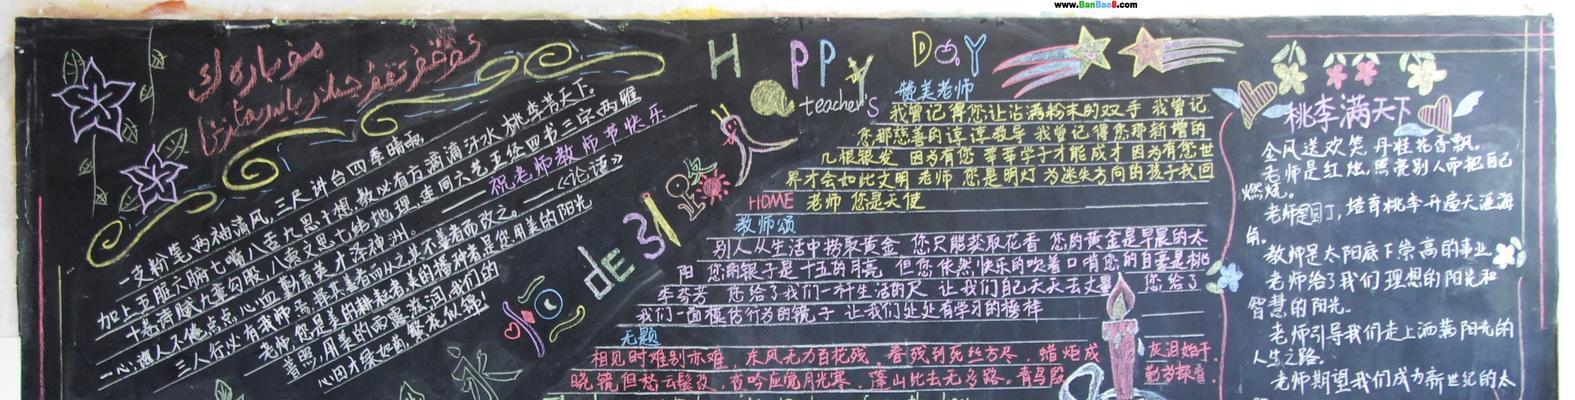 www.BanBao8.com
HAPPY DAY
teacher's
一支粉笔两袖清风,三尺讲台四季晴雨
加上五脏六腑七嘴八舌九思十想,教必有方滴滴汗水桃李芳天下。
十卷诗赋九章勾股,八索文思七纬地理,连同六艺五经四书三字两雅
一心,诲人不倦点点心血勤育英才泽神州。
祝老师教师节快乐
三人行必有我师焉,择其善者而从之其不善者而改之。——《论语》
老师,您是美的耕耘者美的播种者是您用美的阳光
普照,用美的雨露滋润,我们的
心田才绿如茵,繁花似锦!
赞美老师
我曾记得您让沾满粉末的双手 我曾记
您那慈善的谆谆教导 我曾记得您那新增的
几根银发 因为有您 莘莘学子才能成才 因为有您世
界才会如此文明 老师 您是明灯 为迷失方向的孩子找回
HOME 老师 您是天使
教师颂
别人从生活中捞取黄金 您只能萃取花香 您的黄金是早晨的太
阳 您的银子是十五的月亮 但您依然快乐的吹着口哨 您的自豪是桃
李芬芳 您给了我们一杆生活的尺 让我们自己天天去丈量 您给了
我们一面模仿行为的镜子 让我们处处有学习的榜样
无题
相见时难别亦难,东风无力百花残。春蚕到死丝方尽,蜡炬成灰泪始干.
晓镜但愁云鬓改,夜吟应觉月光寒。蓬山此去无多路,青鸟殷勤为探看.
桃李满天下
金风送欢笑,丹桂花香飘。
老师是红烛,照亮别人而把自己
燃烧。
老师是园丁,培育桃李开遍天涯海
角。
教师是太阳底下崇高的事业
老师给了我们理想的阳光和
智慧的阳光。
老师引导我们走上洒满阳光的
人生之路。
老师期望我们成为新世纪的太